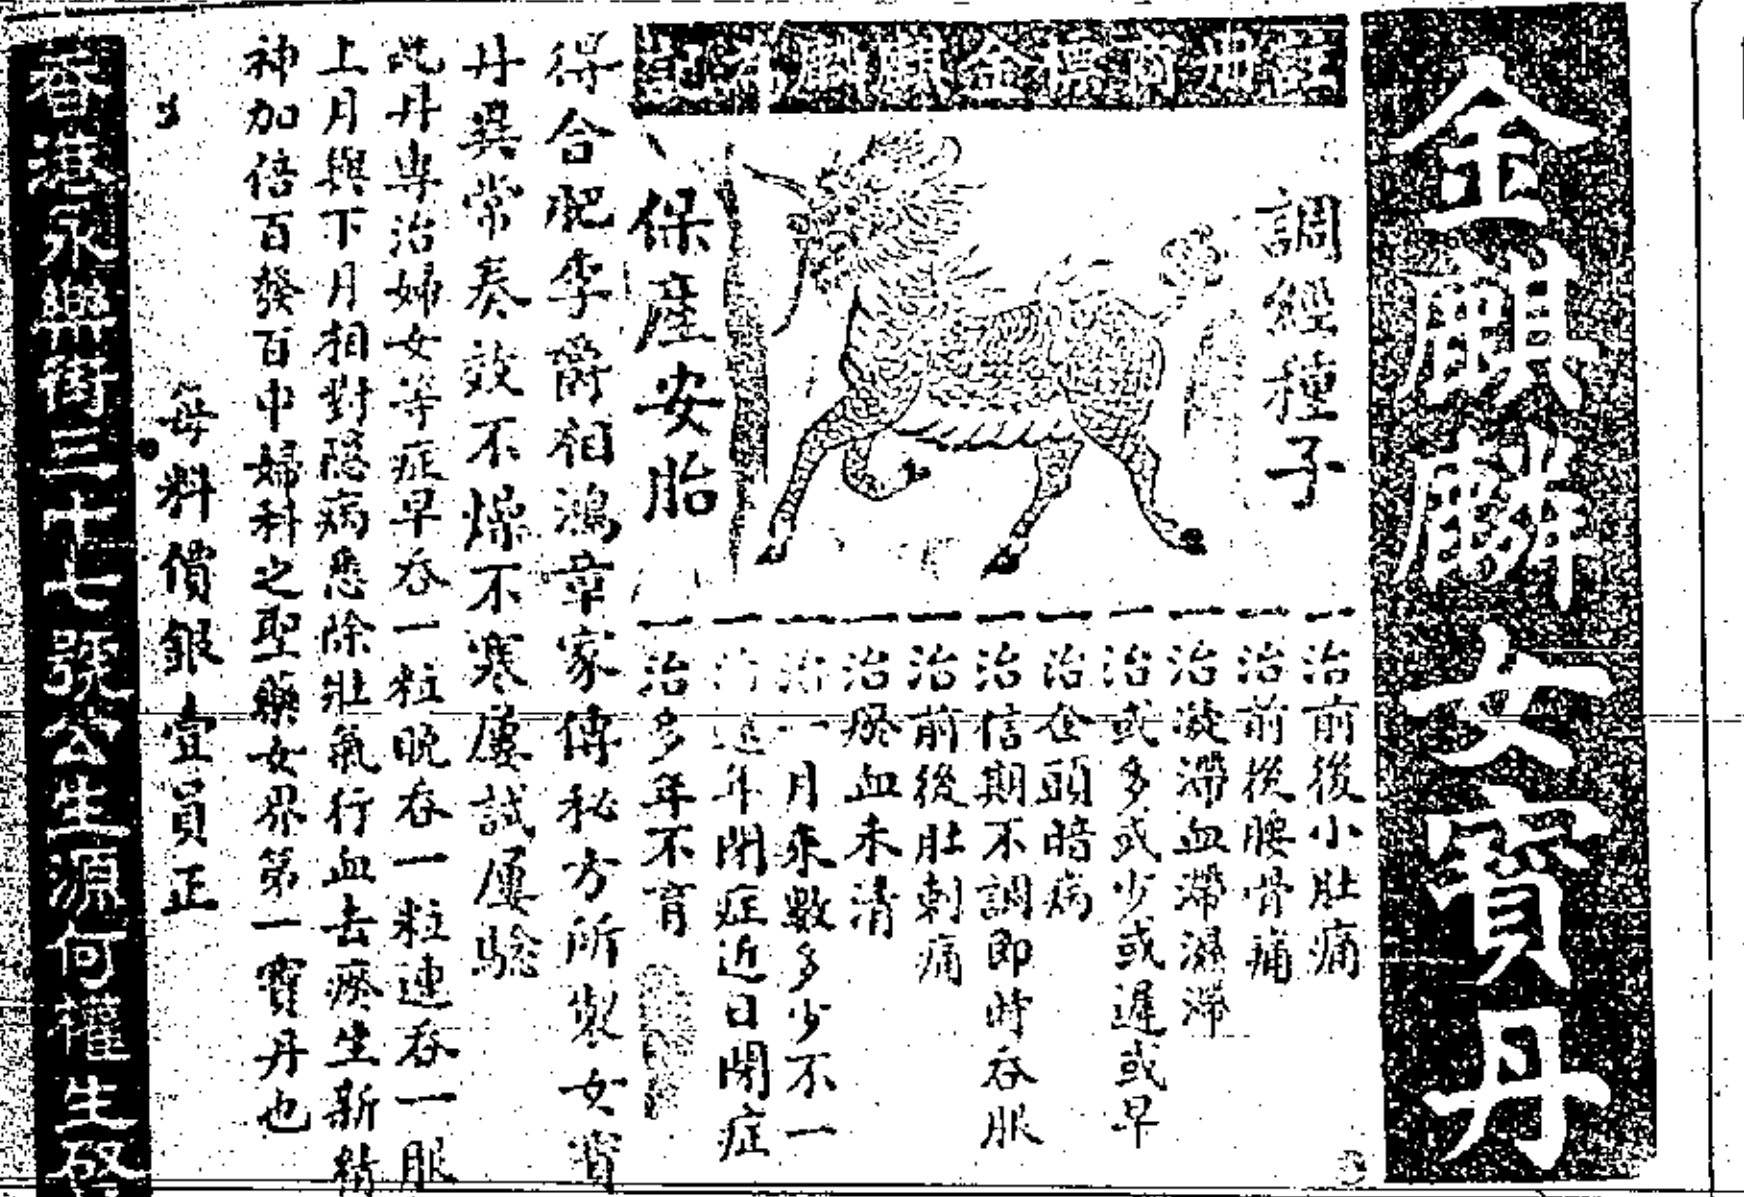 金麒麟女寶丹
註冊商標金麒麟為記
調經種子
保產安胎
一治前後小肚痛
一治前後腰骨痛
一治凝滯血滯濕滯
一治或多或少或遲或早
一治企頭暗病
一治信期不調即時吞服
一治前後肚刺痛
一治瘀血未清
一治一月來數多少不一
一治遠年閉症近日閉症
一治多年不育
得合肥李爵相鴻章家傳秘方所製女寶
丹異常奏效不燥不寒屢試屢驗
此丹專治婦女等症早吞一粒晚吞一粒連吞一服
上月與下月相對隱病悉除壯氣行血去瘀生新精
神加倍百發百中婦科之聖藥女界第一寶丹也
每料價銀壹員正
香港永樂街三十七號公生源何權生發